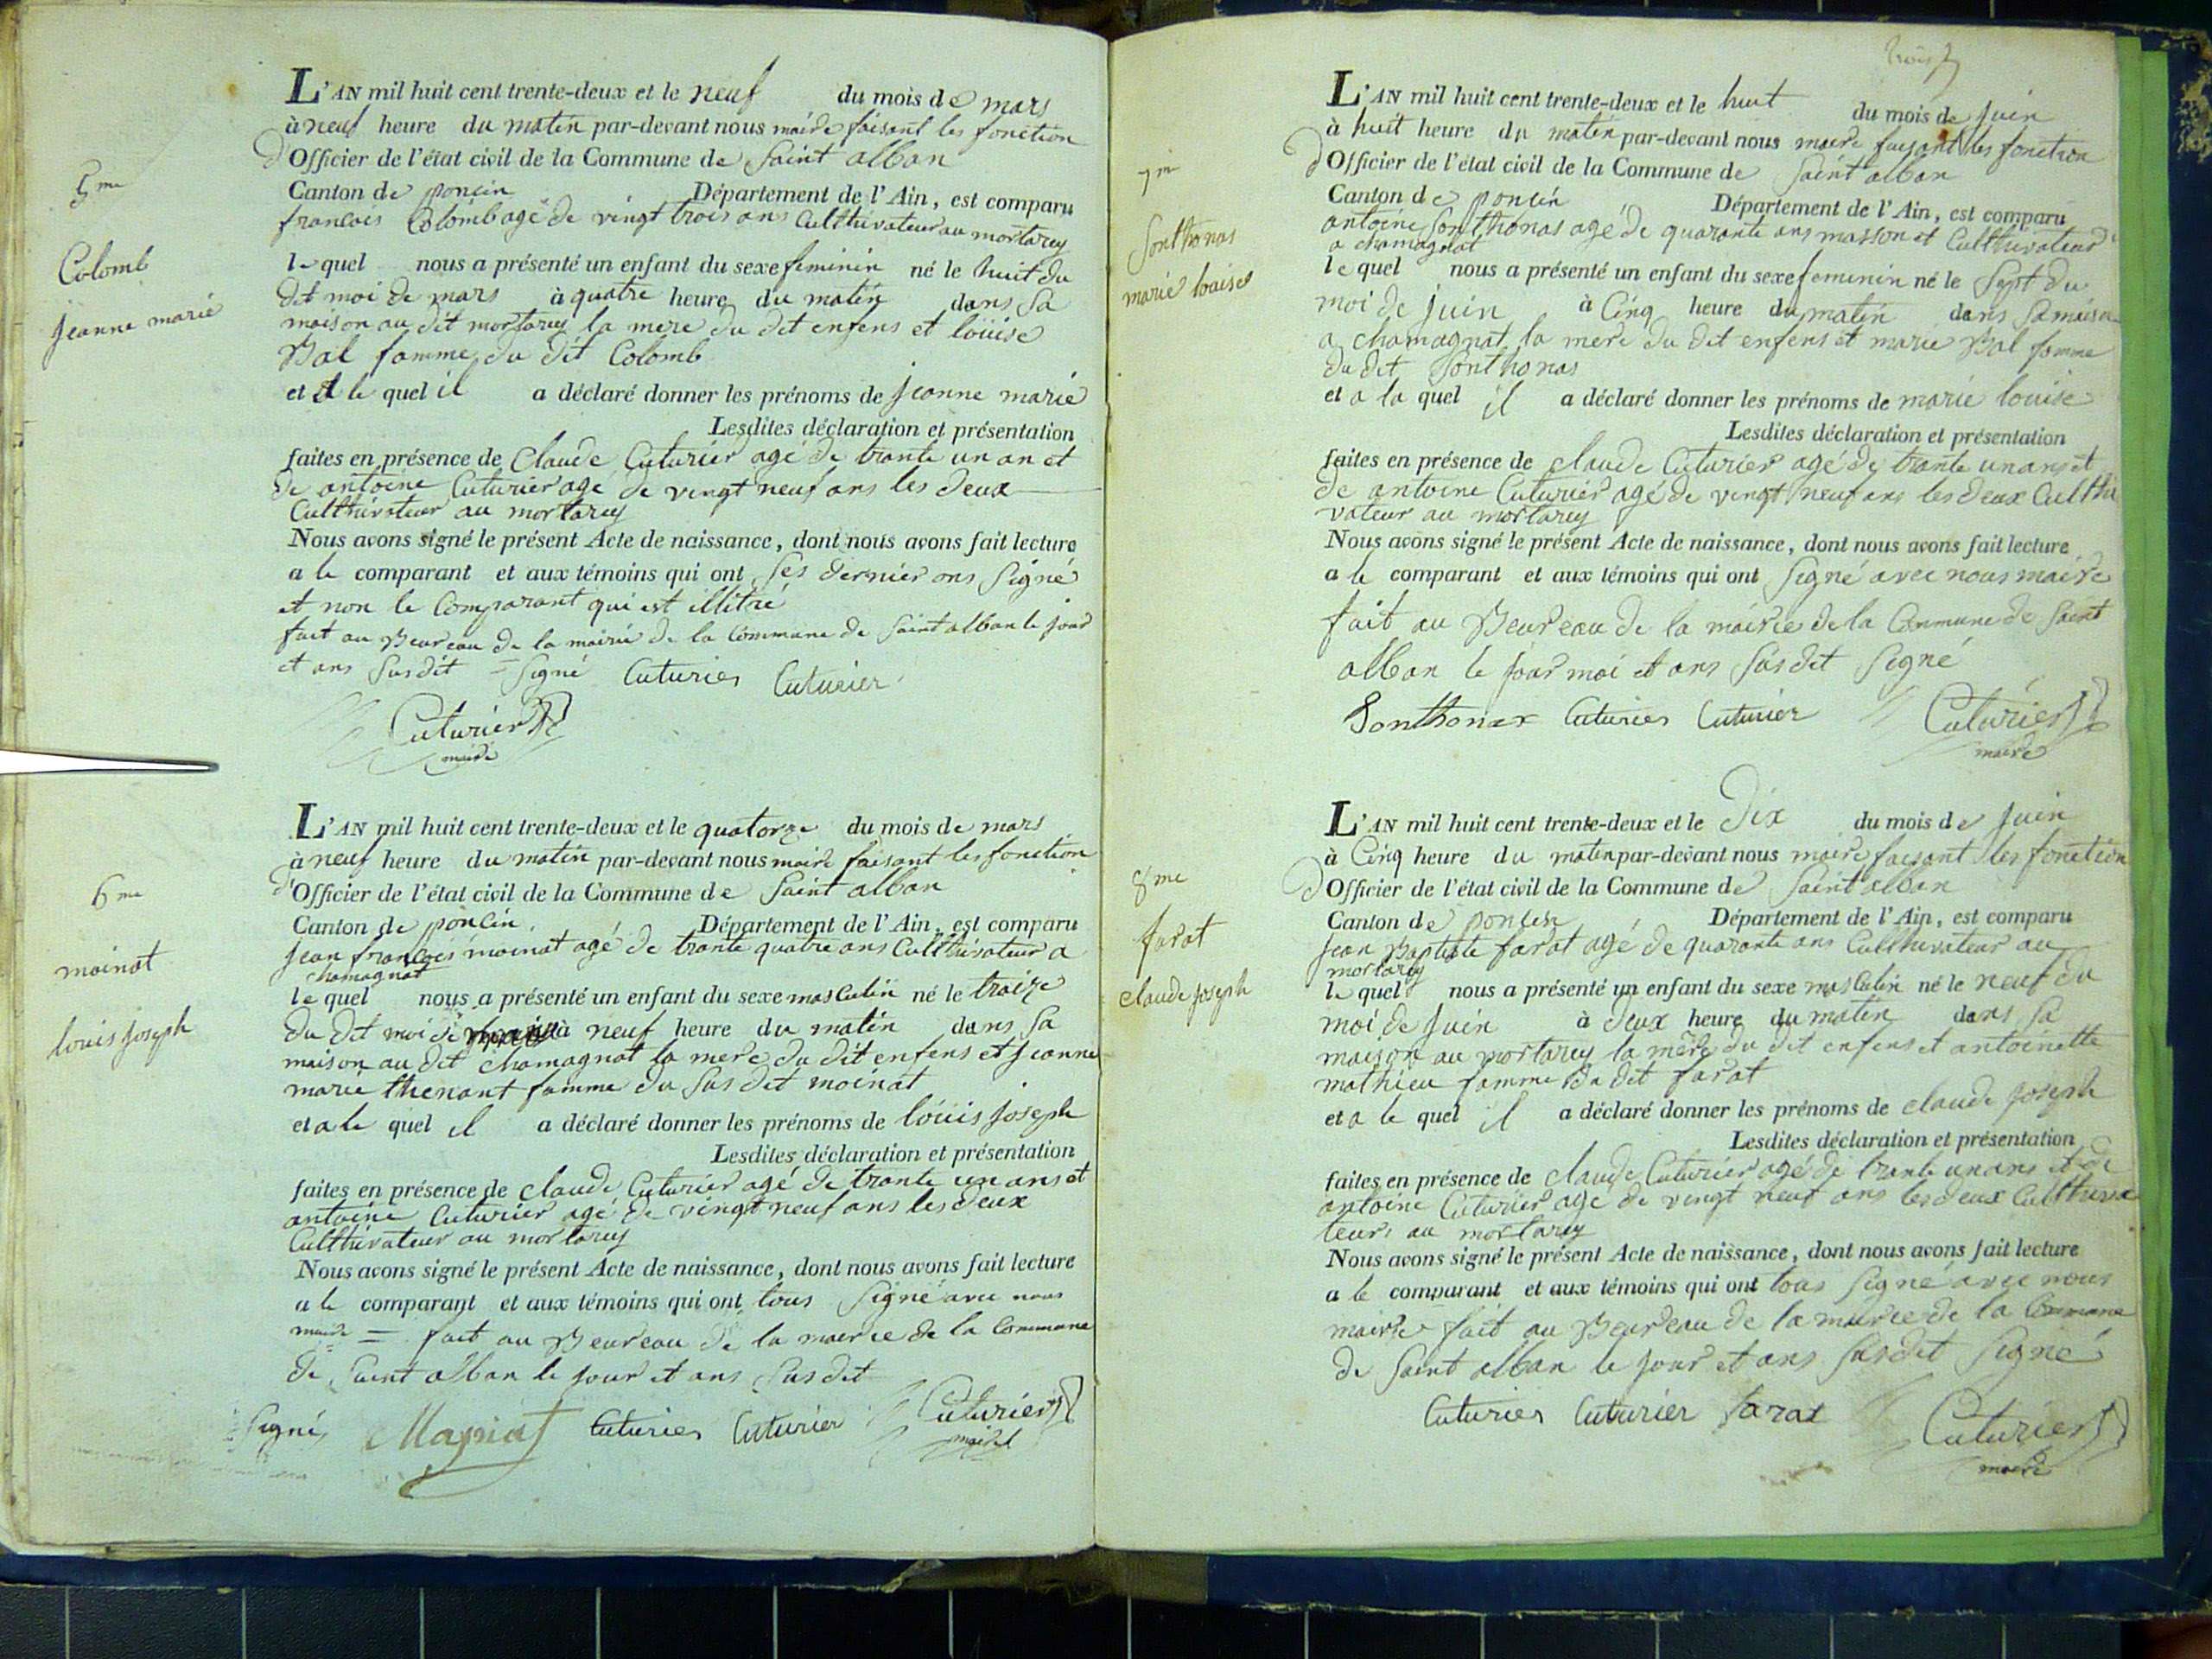 5me
Colomb
jeanne marie
L'AN mil huit cent trente-deux et le neuf du mois de mars
à neuf heure du matin par-devant nous maire faisant les fonction
d'Officier de l'état civil de la Commune de Saint alban
Canton de poncin Département de l'Ain, est comparu
francois Colomb agé de vingt trois ans Culthivateur au mortarey
lequel nous a présenté un enfant du sexe feminin né le huit du
dit moi de mars à quatre heure du matin dans sa
maison au dit mortarey la mere du dit enfens et louise
Bal famme du dit Colomb
et a le quel il a déclaré donner les prénoms de jeanne marie
Lesdites déclaration et présentation
faites en présence de Claude Cuturier agé de trante un an et
de antoine Cuturier agé de vingt neuf ans les deux
Culthivateur au mortarey
Nous avons signé le présent Acte de naissance, dont nous avons fait lecture
a le comparant et aux témoins qui ont ses dernier ons Signé
et non le Comparant qui est illitré
fait au Beureau de la mairie de la Commune de Saint alban le jour
et ans Susdit = Signé Cuturier Cuturier
Cuturier
maire
6me
moinat
louis joseph
L'AN mil huit cent trente-deux et le quatorze du mois de mars
à neuf heure du matin par-devant nous maire faisant les fonction
d'Officier de l'état civil de la Commune de Saint alban
Canton de poncin Département de l'Ain, est comparu
jean francois moinat agé de trante quatre ans Culthivateur a
chamagnat
lequel nous a présenté un enfant du sexe masculin né le traize
du dit moi de à neuf heure du matin dans sa
maison au dit chamagnat la mere du dit enfens et jeanne
marie thenant famme du Sus dit moinat
et a le quel il a déclaré donner les prénoms de louis joseph
Lesdites déclaration et présentation
faites en présence de claude Cuturier agé de trante un ans et
antoine Cuturier agé de vingt neuf ans les deux
Culthivateur au mortarey
Nous avons signé le présent Acte de naissance, dont nous avons fait lecture
a le comparant et aux témoins qui ont tous Signé avec nous
maire = fait au Beureau de la maerie de la Commune
de Saint alban le jour et ans Sus dit
Signé Cuturier Cuturier Cuturier
maire
7me
Sonthonas
marie louise
L'AN mil huit cent trente-deux et le huit du mois de juin
à huit heure du matin par-devant nous maire faisant les fonction
d'Officier de l'état civil de la Commune de Saint alban
Canton de poncin Département de l'Ain, est comparu
antoine Sonthonas agé de quarante ans masson et Culthivateur
a chamagnat
lequel nous a présenté un enfant du sexe feminin né le Sept du
moi de juin à Cinq heure du matin dans Sa maison
a chamagnat la mere du dit enfens et marie Bal famme
du dit Sonthonas
et a la quel il a déclaré donner les prénoms de marie louise
Lesdites déclaration et présentation
faites en présence de claude Cuturier agé de trante un ans et
de antoine Cuturier agé de vingt neuf ans les deux Culthi
vateur au mortarey
Nous avons signé le présent Acte de naissance, dont nous avons fait lecture
a le comparant et aux témoins qui ont Signé avec nous maire
fait au Beureau de la mairie de la Commune de Saint
alban le jour moi et ans Susdit Signé
Sonthonax Cuturier Cuturier Cuturier
maire
8me
farat
claude joseph
L'AN mil huit cent trente-deux et le Dix du mois de juin
à Cinq heure du matin par-devant nous maire faisant les fonction
d'Officier de l'état civil de la Commune de Saint alban
Canton de poncin Département de l'Ain, est comparu
jean Baptiste farat agé de quarante ans Culthivateur au
mortarey
lequel nous a présenté un enfant du sexe masculin né le neuf du
moi de juin à deux heure du matin dans Sa
maison au mortarey la mere du dit enfens et antoinette
mathieu famme du dit farat
et a le quel il a déclaré donner les prénoms de claude joseph
Lesdites déclaration et présentation
faites en présence de claude Cuturier agé de trante un ans et de
antoine Cuturier agé de vingt neuf ans les deux Culthiva
teur au mortarey
Nous avons signé le présent Acte de naissance, dont nous avons fait lecture
a le comparant et aux témoins qui ont tous Signé avec nous
maire fait au Beureau de la mairie de la Commune
de Saint alban le jour et ans Susdit Signé
Cuturier Cuturier farat Cuturier
maire